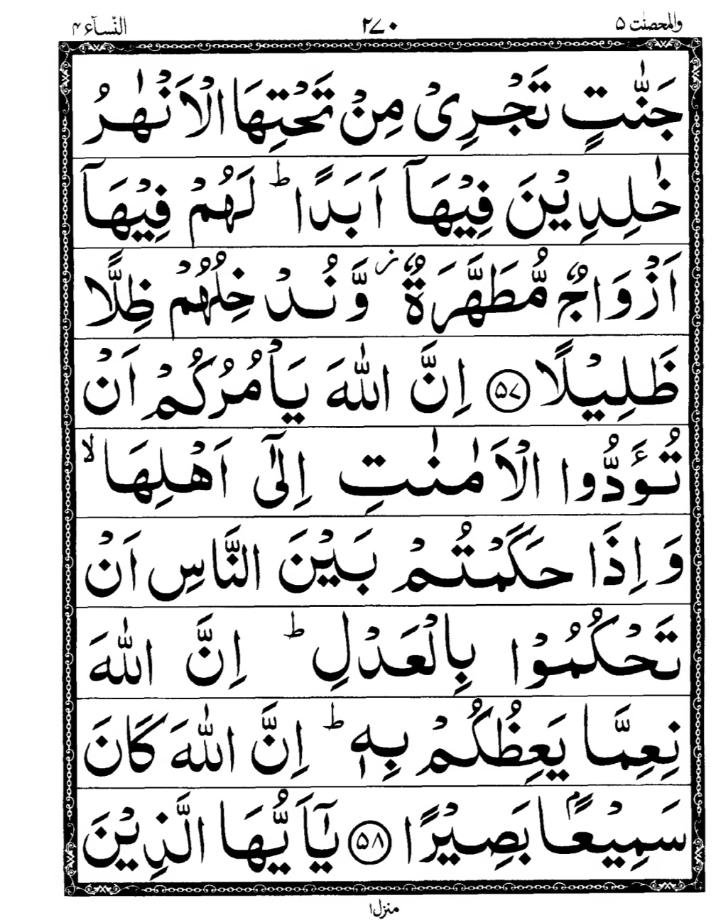 والمحصنت ۵
۲۷۰
النسآء ۴
جَنّٰتٍ تَجْرِیْ مِنْ تَحْتِهَا الْاَنْهٰرُ
خٰلِدِیْنَ فِیْهَاۤ اَبَدًا ؕ لَهُمْ فِیْهَاۤ
اَزْوَاجٌ مُّطَهَّرَةٌ ؗ وَّنُدْخِلُهُمْ ظِلًّا
ظَلِیْلًا ﴿۵۷﴾ اِنَّ اللّٰهَ یَاْمُرُكُمْ اَنْ
تُؤَدُّوا الْاَمٰنٰتِ اِلٰۤی اَهْلِهَا ۙ
وَاِذَا حَكَمْتُمْ بَیْنَ النَّاسِ اَنْ
تَحْكُمُوْا بِالْعَدْلِ ؕ اِنَّ اللّٰهَ
نِعِمَّا یَعِظُكُمْ بِهٖ ؕ اِنَّ اللّٰهَ كَانَ
سَمِیْعًۢا بَصِیْرًا ﴿۵۸﴾ یٰۤاَیُّهَا الَّذِیْنَ
منزل۱